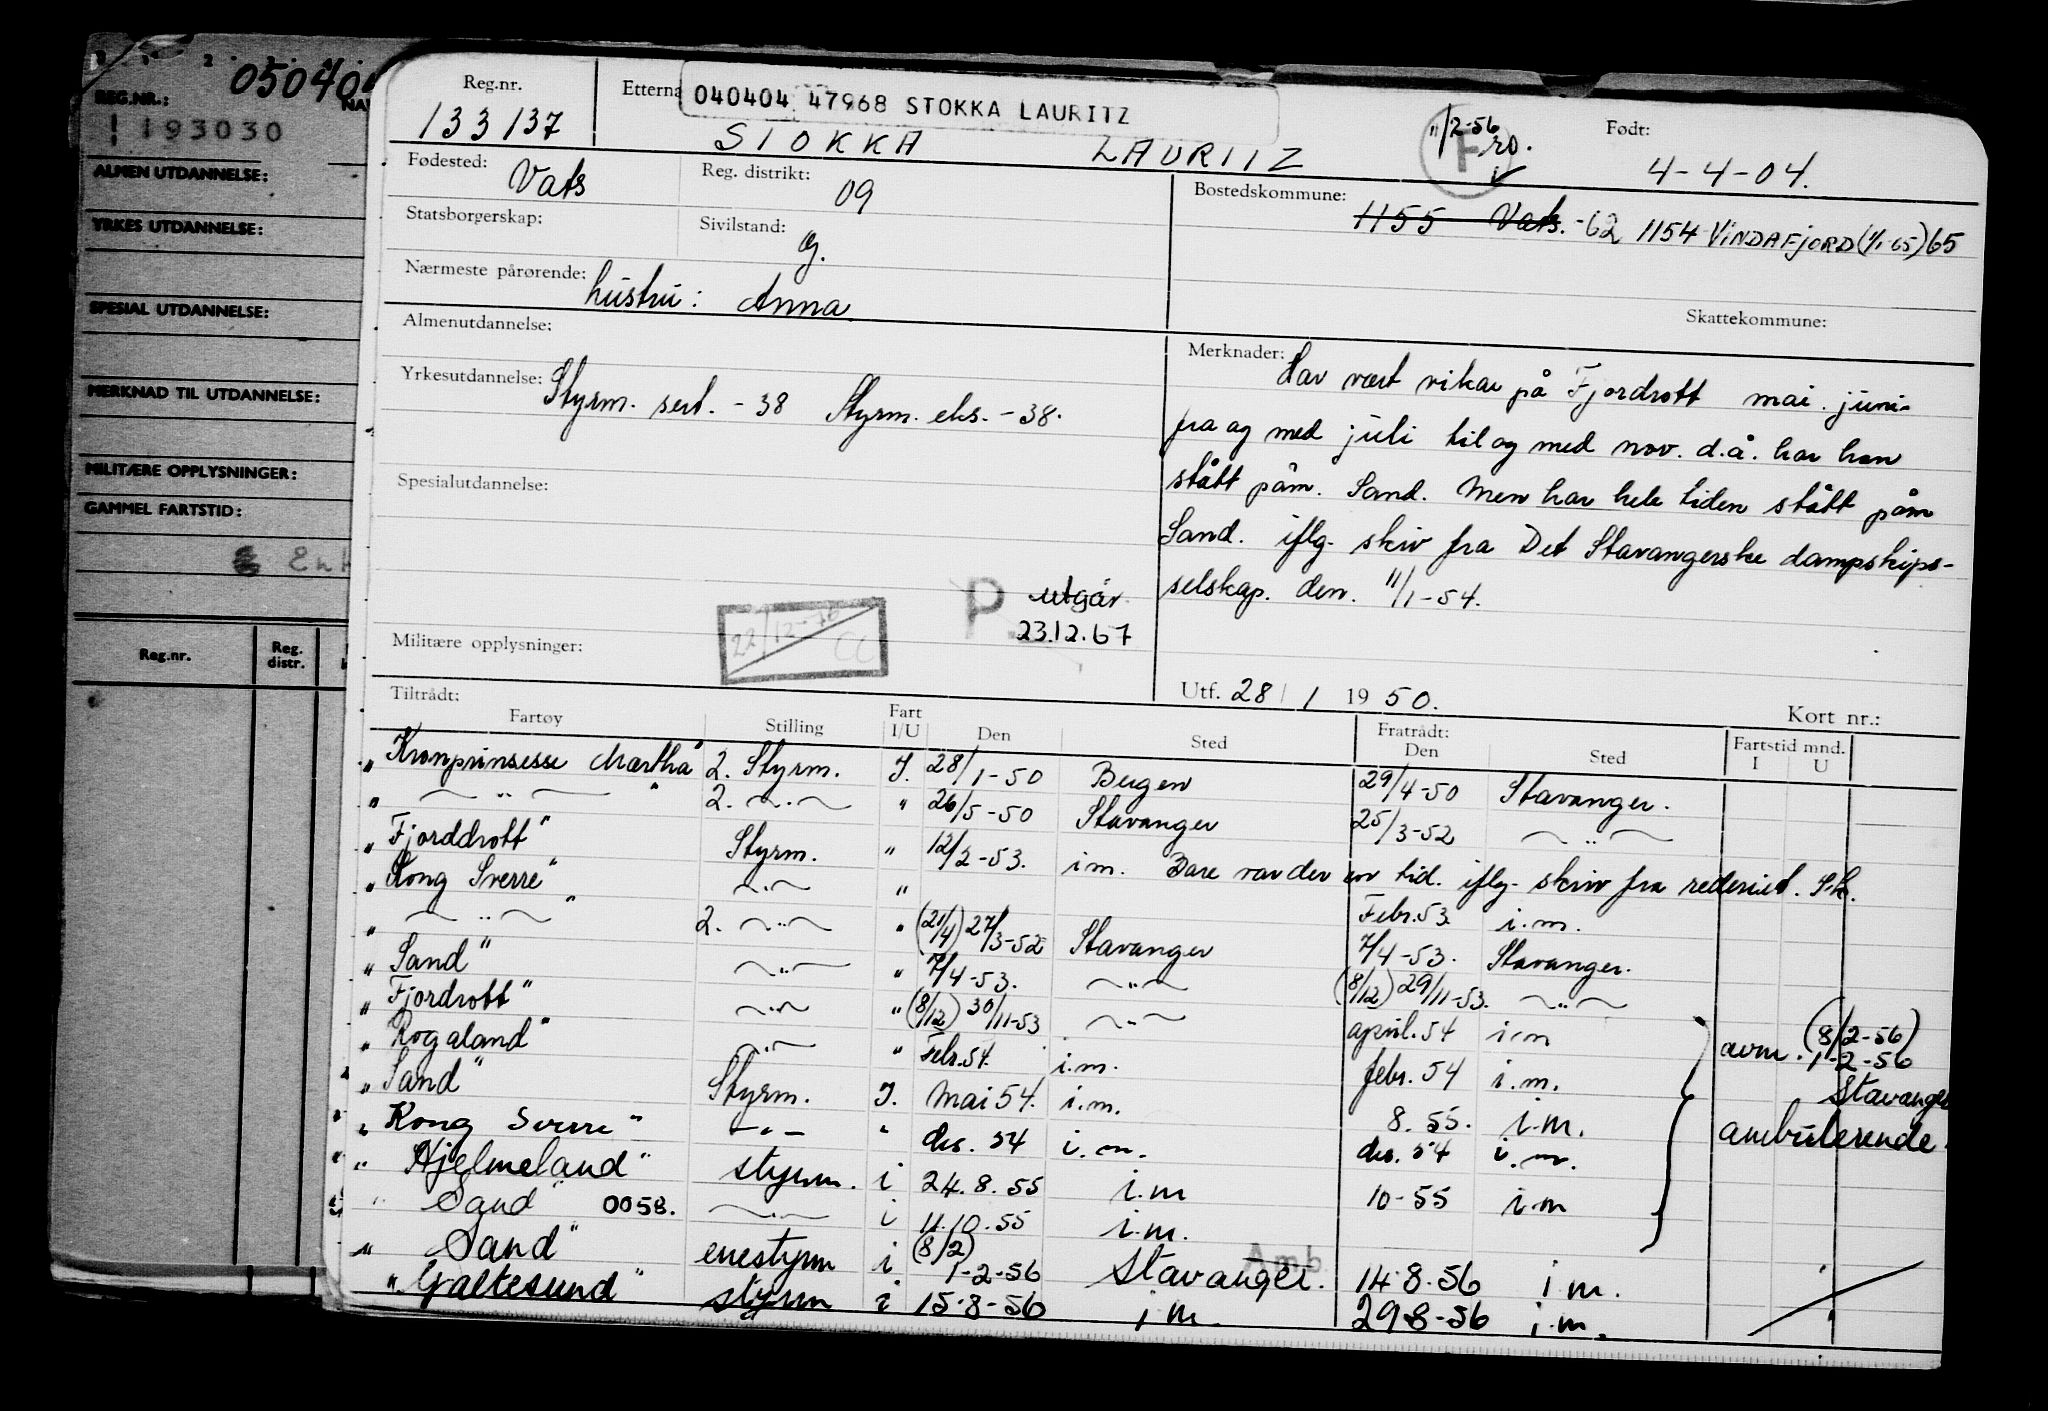 050404
REG.NR.:
NAV
193030
ALMEN UTDANNELSE:
YRKES UTDANNELSE:
SPESIAL UTDANNELSE:
MERKNAD TIL UTDANNELSE:
MILITÆRE OPPLYSNINGER:
GAMMEL FARTSTID:
Reg.nr. Reg. distr.
Reg.nr. Etterna 040404 47968 STOKKA LAURITZ Født:
133137 STOKKA LAURITZ 11/2-56 F 4-4-04.
Fødested: Vats Reg. distrikt: 09 Bostedskommune: 1155 Vats. -62 1154 VINDAFJORD (1/1-65) 65
Statsborgerskap: Sivilstand: g.
Nærmeste pårørende: hustru: Anna
Skattekommune:
Almenutdannelse:
Yrkesutdannelse: Styrm. sert. - 38 Styrm. eks. - 38.
Merknader: Har vært vikar på Fjordrott mai. juni.
fra og med juli til og med nov. d.å. har han
stått påm. Sand. Men har hele tiden stått påm
Sand. iflg. skriv fra Det Stavangerske dampskips-
selskap. den. 11/1-54.
Spesialutdannelse:
P utgår 23.12.67
Militære opplysninger: 22/12-70 CC
Utf. 28/1 1950.
Kort nr.:
Tiltrådt:
Fartøy Stilling Fart I/U Den Sted Fratrådt: Den Sted Fartstid mnd. I U
" Kronprinsesse Martha" 2. Styrm. I. 28/1-50 Bergen 29/4-50 Stavanger.
" — " — " 2. — " — " 26/5-50 Stavanger 25/3-52 — " —
" Fjorddrott" Styrm. " 12/2-53. i.m. Bare var der en tid. iflg. skriv fra rederiet.
" Kong Sverre" — " — "
" — " — " 2. — " — " (21/4) 27/3-52 Stavanger Febr. 53 i.m.
" Sand" — " — " 7/4-53. — " — 7/4-53. Stavanger.
" Fjordrott" — " — " (8/12) 30/11-53 — " — (8/12) 29/11-53. — " —
" Rogaland" — " — " Febr. 54. i.m. april. 54 i.m
" Sand" Styrm. I. Mai 54. i.m. febr. 54 i.m.
avm. (8/2-56) 1-2-56 Stavanger
" Kong Sverre" — " — " des. 54 i.m. 8. 55. i.m. ambulerende.
" Hjelmeland" styrm. i 24.8.55 i.m des. 54 i.m.
" Sand" 0058. — " — i 11.10.55 i.m. 10-55 i.m
" Sand" enestyrm i (8/2) 1-2-56 Stavanger. Amb. 14-8-56 i m.
" Galtesund" styrm i 15-8-56 i m. 29-8-56 i.m.